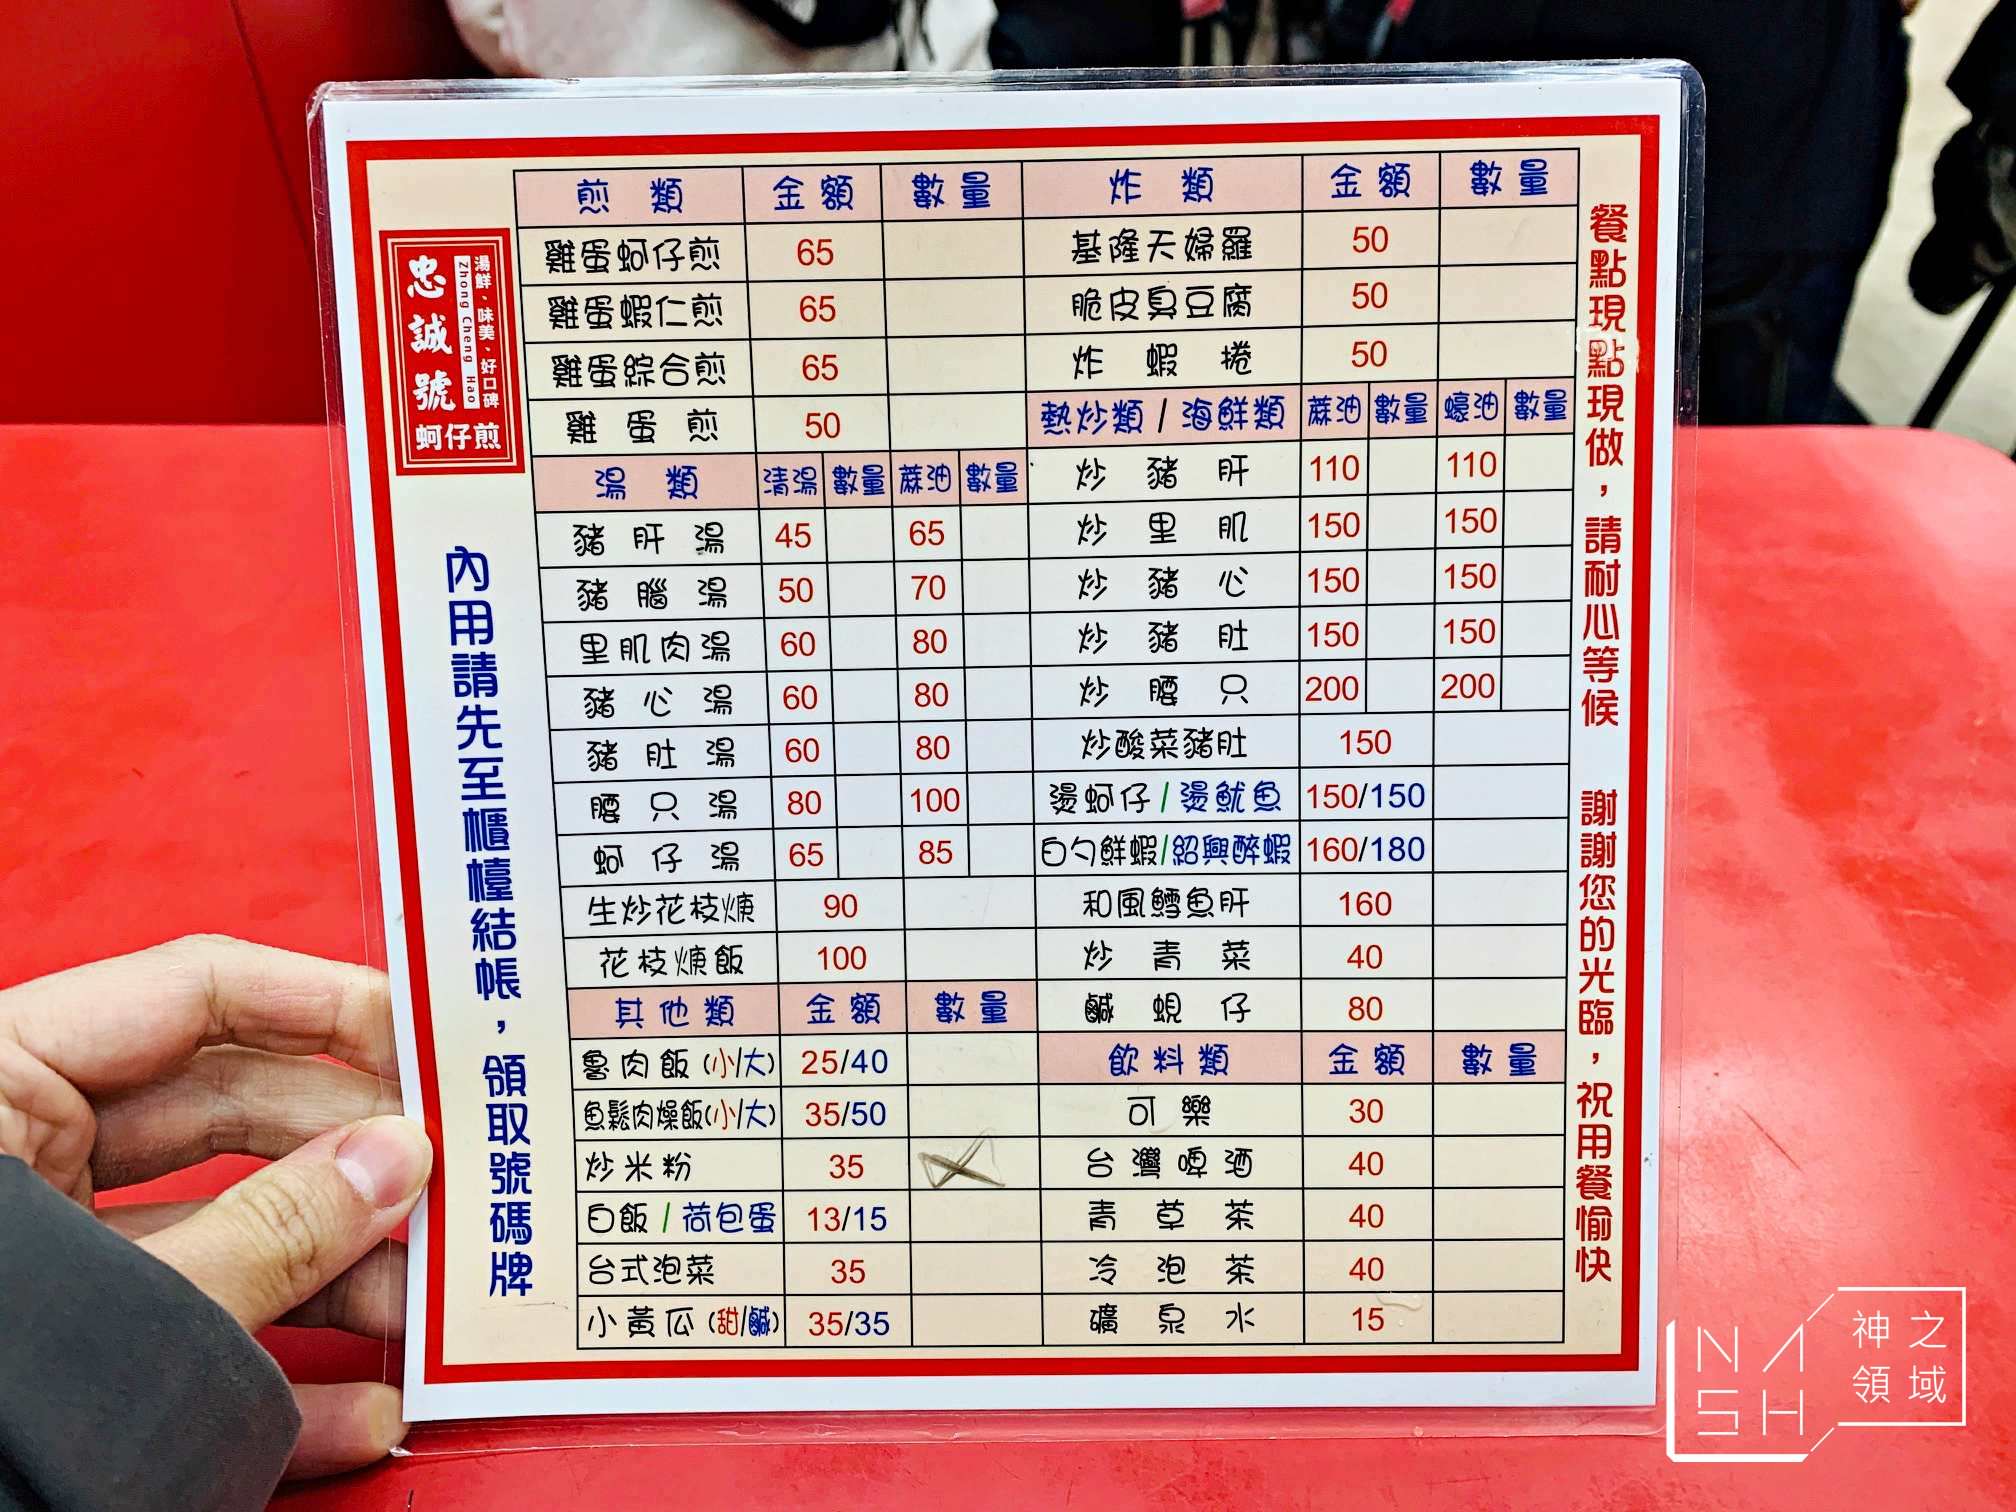 忠誠號
Zhong Cheng Hao
湯鮮、味美、好口碑
蚵仔煎
內用請先至櫃檯結帳，領取號碼牌
煎類 金額 數量
雞蛋蚵仔煎 65
雞蛋蝦仁煎 65
雞蛋綜合煎 65
雞蛋煎 50
湯類 清湯 數量 蔴油 數量
豬肝湯 45 65
豬腦湯 50 70
里肌肉湯 60 80
豬心湯 60 80
豬肚湯 60 80
腰只湯 80 100
蚵仔湯 65 85
生炒花枝焿 90
花枝焿飯 100
其他類 金額 數量
魯肉飯(小/大) 25/40
魚鬆肉燥飯(小/大) 35/50
炒米粉 35
白飯/荷包蛋 13/15
台式泡菜 35
小黃瓜(甜/鹹) 35/35
炸類 金額 數量
基隆天婦羅 50
脆皮臭豆腐 50
炸蝦捲 50
熱炒類/海鮮類 蔴油 數量 蠔油 數量
炒豬肝 110 110
炒里肌 150 150
炒豬心 150 150
炒豬肚 150 150
炒腰只 200 200
炒酸菜豬肚 150
燙蚵仔/燙魷魚 150/150
白勺鮮蝦/紹興醉蝦 160/180
和風鱈魚肝 160
炒青菜 40
鹹蜆仔 80
飲料類 金額 數量
可樂 30
台灣啤酒 40
青草茶 40
冷泡茶 40
礦泉水 15
餐點現點現做，請耐心等候 謝謝您的光臨，祝用餐愉快
NASH
神之領域